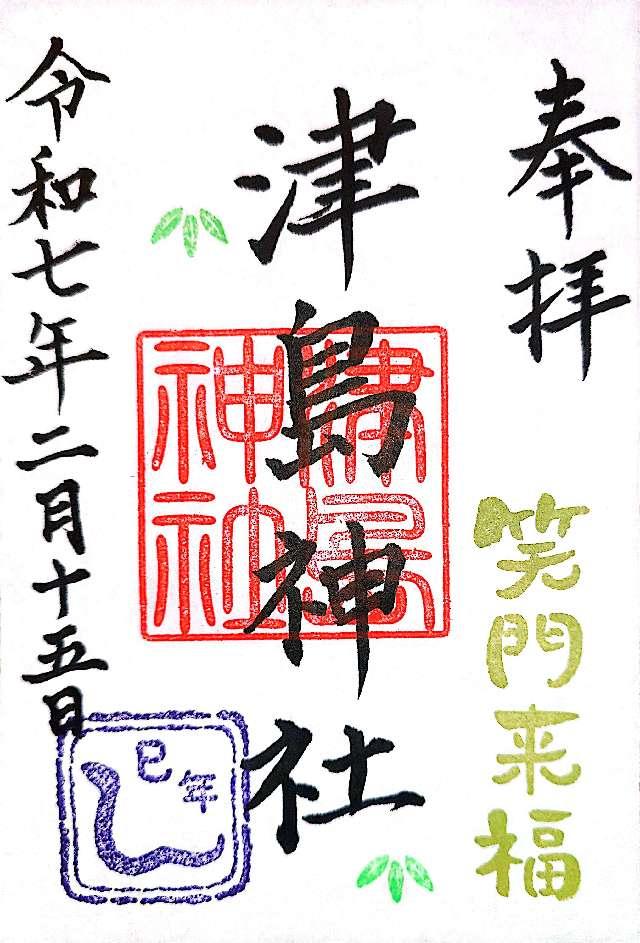 奉拝
笑門来福
津島神社
津島神社
令和七年二月十五日
巳年